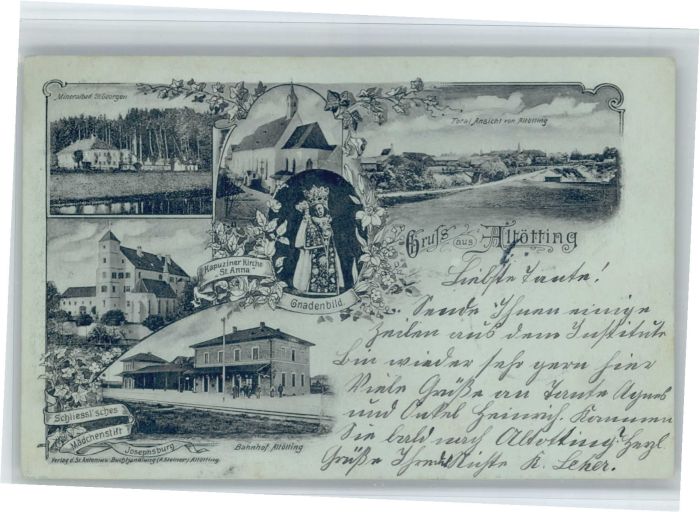 Mineralbad St. Georgen
Total Ansicht von Altötting
Gruss aus Altötting
Kapuziner Kirche
St. Anna
Gnadenbild.
Liebste Tante!
Sende Ihnen einige
Zeilen aus dem Institute
Bin wieder sehr gern hier
Viele Grüße an Tante Agnes
und Onkel Heinrich. Kommen
Sie bald nach Altötting: Herzl.
Grüße Ihre Nichte K. Leher.
Schliessl'sches
Mädchenstift
Josephsburg
Bahnhof Altötting
Verlag d. St. Antonius-Buchhandlung (A. Steiner) Altötting.